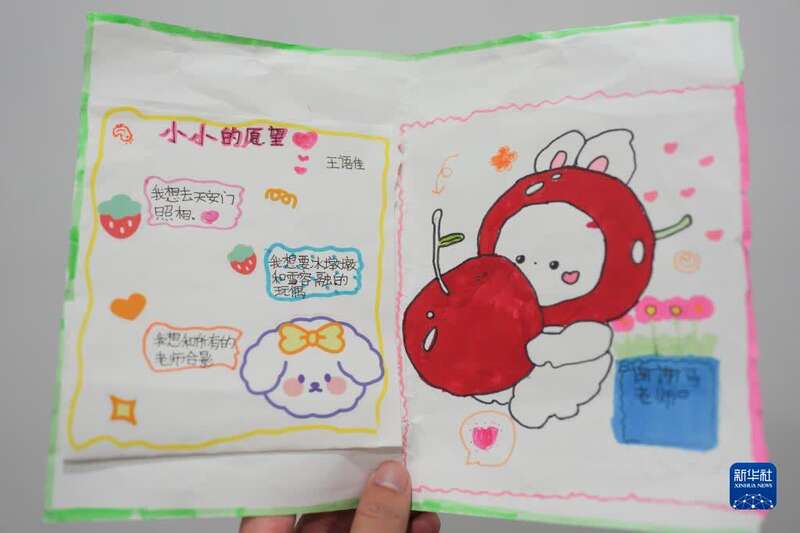 小小的愿望
王语佳
我想去天安门
照相、
我想要冰墩墩
和雪容融的
玩偶
我想和所有的
老师合影
谢谢马
老师
新华社
XINHUA NEWS